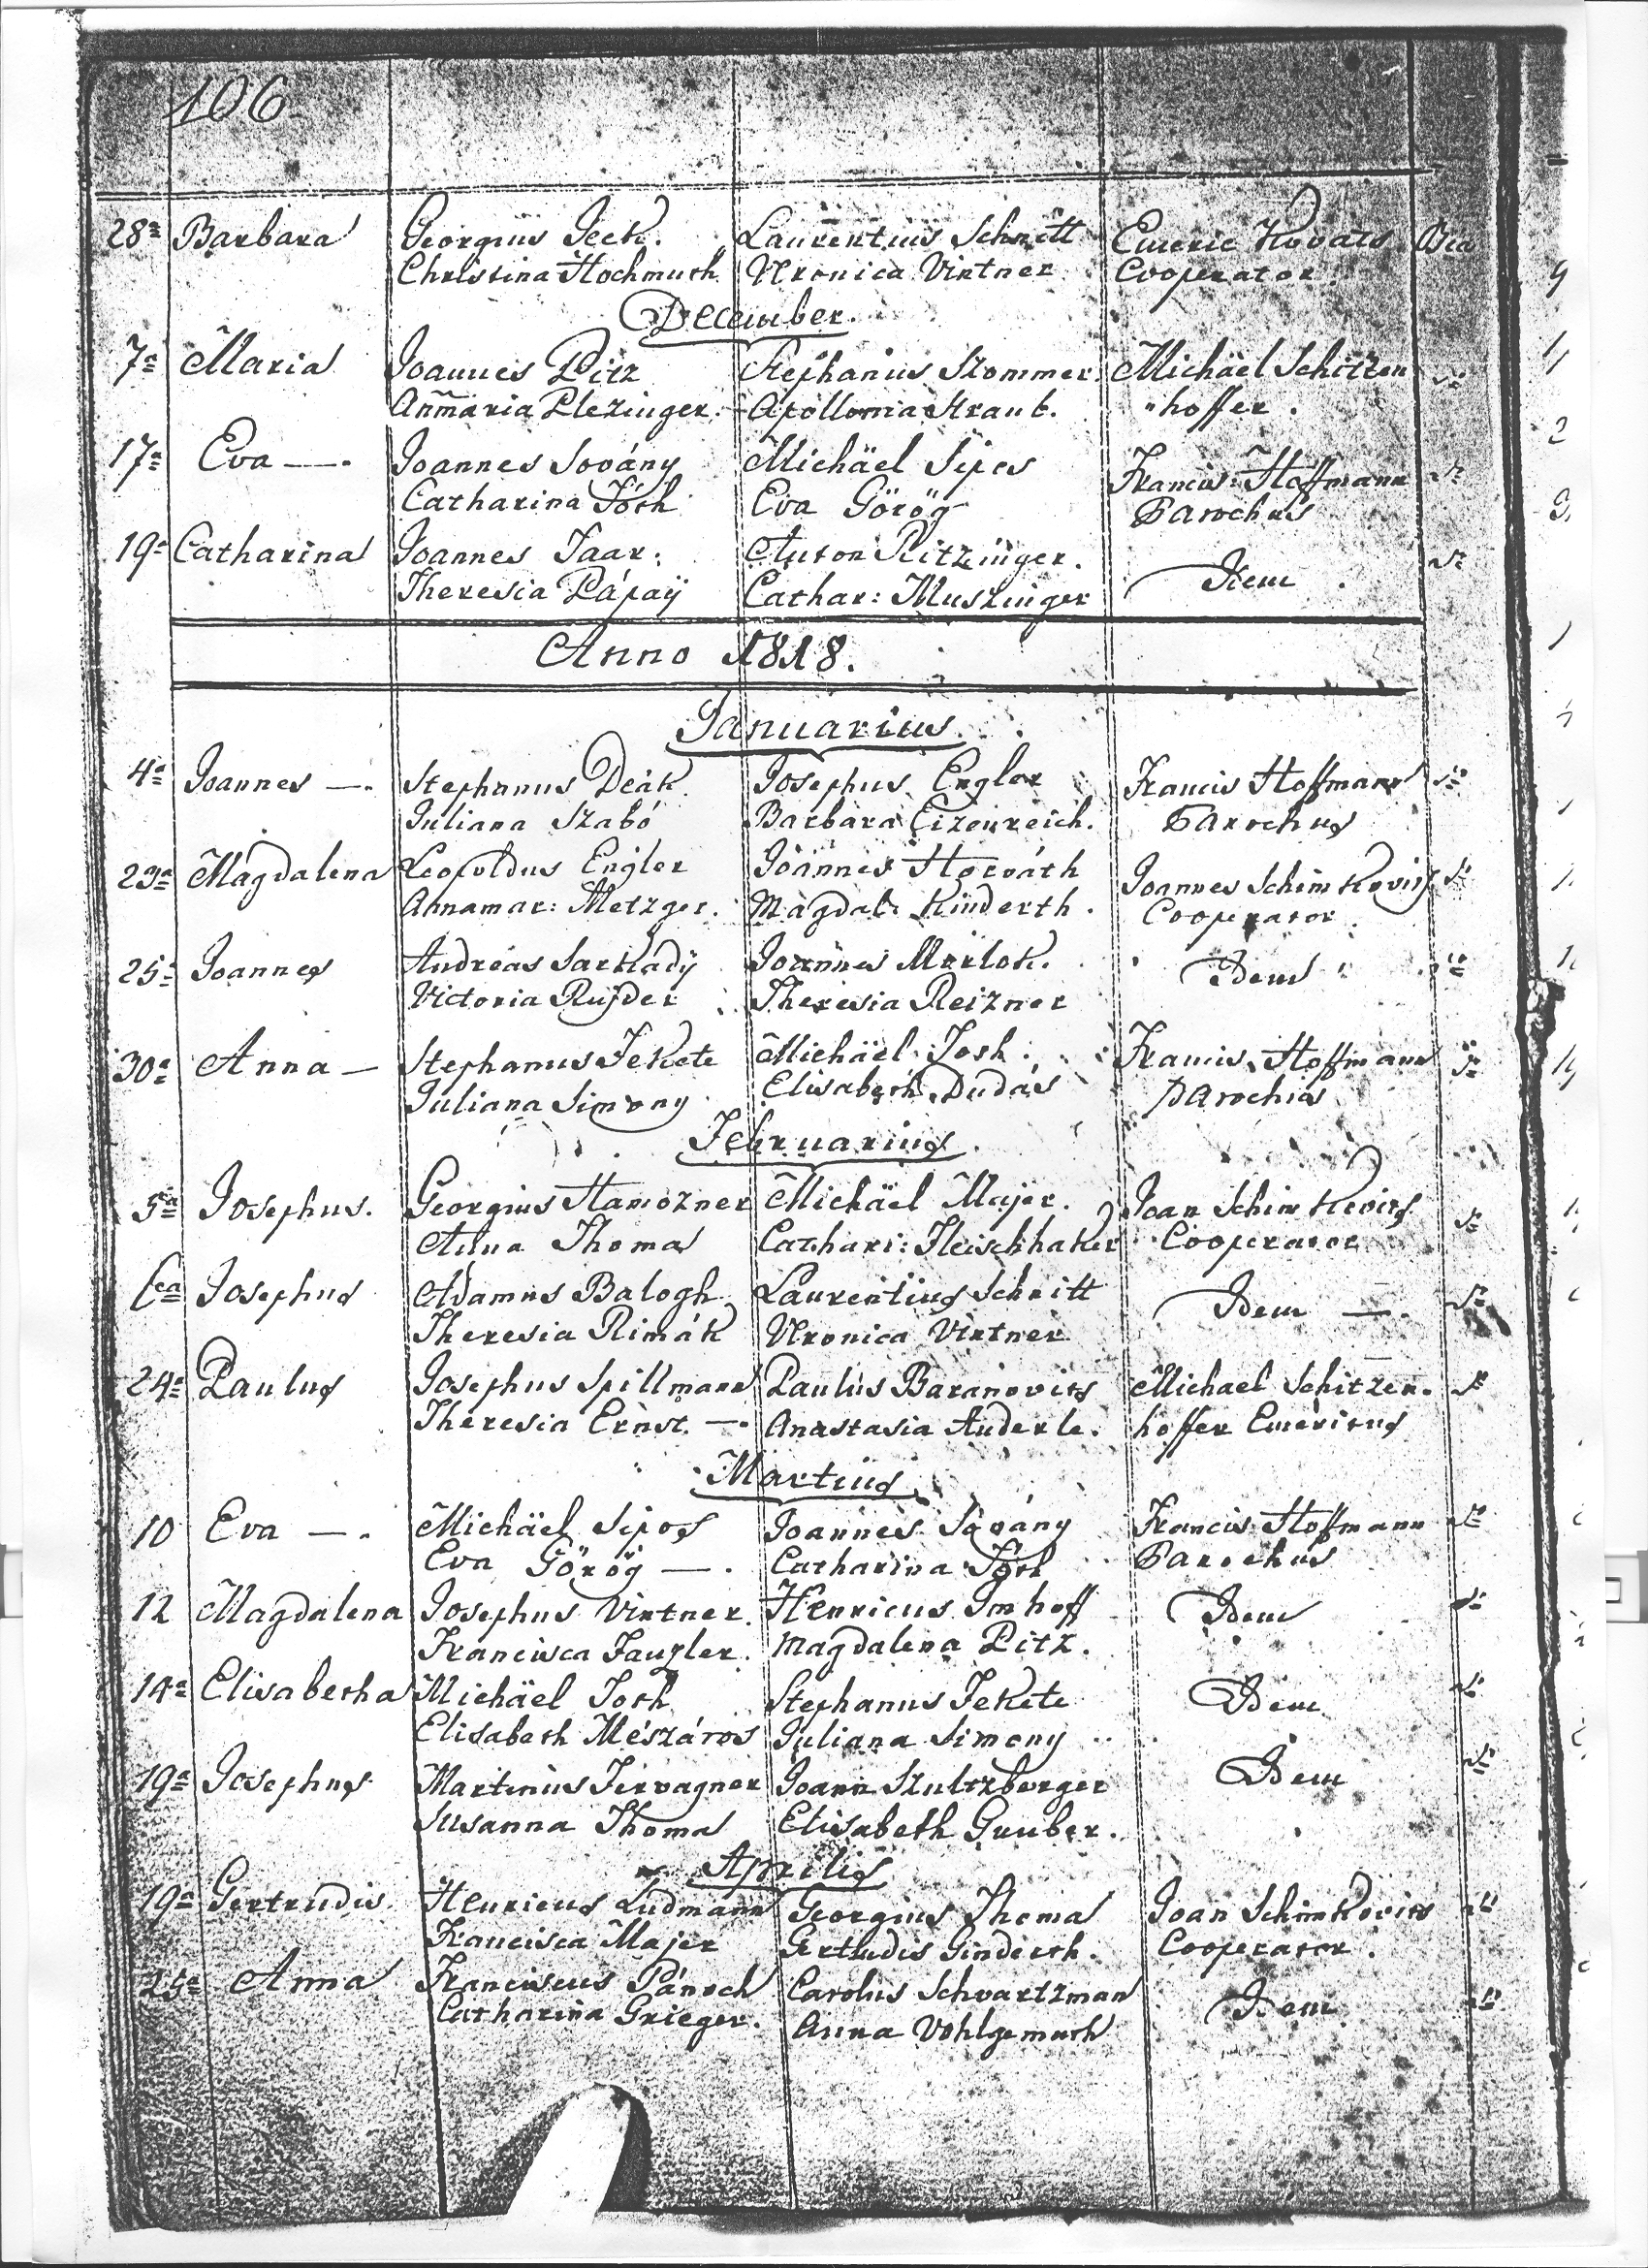 106
28a Barbara Georgius Jeck. Laurentius Schmitt Emeric Kovats
Christina Hochmuth Vronica Virtner Cooperator.
December.
7a Maria Joannes Pitz Stephanus Stommer. Michäel Schitzen
Annmaria Plezinger. Apollonia Straub. hoffer.
17a Eva —. Joannes Sovány Michäel Sipos Francis: Hoffmann
Catharina Tóth Eva Görög Parochus
19a Catharina Joannes Jaar. Anton Ritzinger. Item.
Theresia Pápaÿ Cathar: Muszinger
Anno 1818.
Januarius.
4a Joannes —. Stephanus Deák Josephus Engler Francis Hoffmann
Juliana Szabó Barbara Eizenreich. Parochus
23a Magdalena Leopoldus Engler Joannes Horváth Joannes Schimkovits
Annamar: Metzger. Magdal: Kinderth. Cooperator.
25a Joannes Andreas Sarkadÿ Joannes Morlok. Idem
Victoria Theresia Reizner
30a Anna — Stephanus Fekete Michäel Tosh. Francis. Hoffmann
Juliana Simony Elisabeth Dudás Parochus
Februarius.
5a Josephus. Georgius Hamozner Michäel Majer. Joan Schimkovits
Anna Thoma Cathari: Fleischhaker Cooperator
6ta Josephus Adamus Balogh Laurentius Schmitt Idem —.
Theresia Rimák Vronica Virtner
24a Paulus Josephus Spillmann Paulus Baranovits Michael Schitzen-
Theresia Ernst. — Anastasia Anderle. hoffer Emeritus
Martius
10 Eva —. Michäel Sipos Joannes Sovány Francis Hoffmann
Eva Görög —. Catharina Tóth Parochus
12 Magdalena Josephus Virtner. Henricus Imhoff Idem
Francisca Fauzler. Magdalena Pitz.
14a Elisabetha Michäel Toth Stephanus Fekete Idem
Elisabeth Mészáros Juliana Simony
19a Josephus Martinus Ferwagner Joann Szultzberger Idem
Susanna Thoma Elisabeth Gruber.
Aprilis
19a Gertrudis. Henricus Ludmann Georgius Thoma Joan Schimkovits
Francisca Majer Gertudis Ginderth. Cooperator.
25a Anna Franciscus Pánoch Carolus Schvartzman Idem
Catharina Grieger. Anna Vohlgemuth